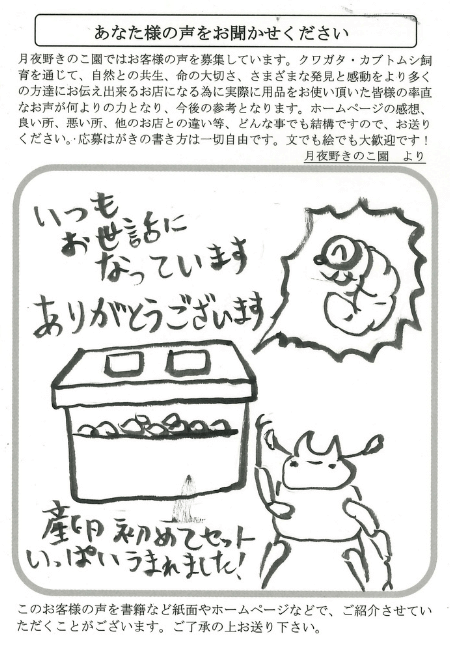 あなた様の声をお聞かせください
月夜野きのこ園ではお客様の声を募集しています。クワガタ・カブトムシ飼
育を通じて、自然との共生、命の大切さ、さまざまな発見と感動をより多く
の方達にお伝え出来るお店になる為に実際に用品をお使い頂いた皆様の率直
なお声が何よりの力となり、今後の参考となります。ホームページの感想、
良い所、悪い所、他のお店との違い等、どんな事でも結構ですので、お送り
ください。応募はがきの書き方は一切自由です。文でも絵でも大歓迎です！
月夜野きのこ園　より
いつも
お世話に
なっています
ありがとうございます
産卵初めてセット
いっぱいうまれました!
このお客様の声を書籍など紙面やホームページなどで、ご紹介させてい
ただくことがございます。ご了承の上お送り下さい。